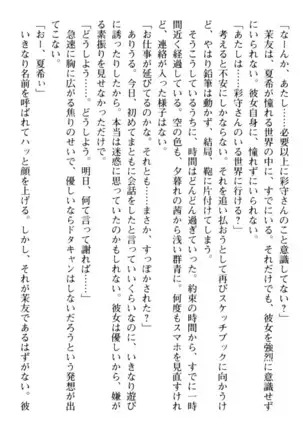 「なーんか、あたし……必要以上に彩守さんのこと意識してない？」
茉友は、夏希が憧れる世界の中に、すでにいる。それだけでも、彼女を強烈に意識せず
にいられない。彼女自身に、憧れずにいられない。
「あたしは……彩守さんのいる世界に行ける？」
考えると不安にしかならない。それを追い払おうとして再びスケッチブックに向かうけ
ど、やはり鉛筆は動かず、結局、鞄に片付けてしまう。
そうこうしているうちに、時間はどんどん過ぎていった。約束の時間から、すでに一時
間近く経過している。空の色も、夕暮れの茜から浅い群青に。何度もスマホを見直すけれ
ど、連絡が入った様子はない。
「お仕事が延びてるのかな。それとも……まさか、すっぽかされた？」
ありうる。今日、初めてまともに会話をしたと言っていいくらいなのに、いきなり遊び
に誘ったりしたから。本当は迷惑に思っていたのかもしれない。彼女は優しいから、嫌が
る素振りを見せなかっただけで。
「どうしよう……。どうしよう。明日、何て言って謝れば……」
急速に胸に広がる焦りのせいで、優しいならドタキャンはしないだろうという発想が出
てこない。
「おー、夏希ぃ」
いきなり名前を呼ばれてハッと顔を上げる。しかし、それが茉友であるはずがない。彼